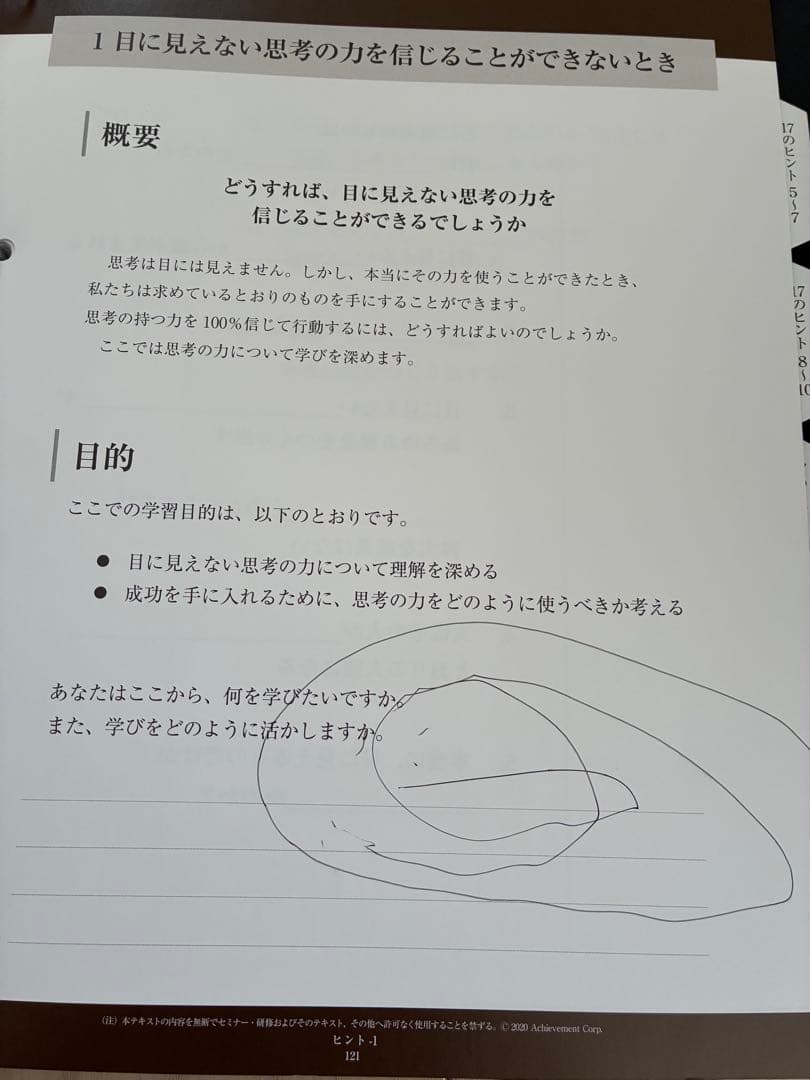 1 目に見えない思考の力を信じることができないとき
概要
どうすれば、目に見えない思考の力を
信じることができるでしょうか
思考は目には見えません。しかし、本当にその力を使うことができたとき、
私たちは求めているとおりのものを手にすることができます。
思考の持つ力を100%信じて行動するには、どうすればよいのでしょうか。
ここでは思考の力について学びを深めます。
目的
ここでの学習目的は、以下のとおりです。
● 目に見えない思考の力について理解を深める
● 成功を手に入れるために、思考の力をどのように使うべきか考える
あなたはここから、何を学びたいですか。
また、学びをどのように活かしますか。
(注) 本テキストの内容を無断でセミナー・研修およびそのテキスト、その他へ許可なく使用することを禁ずる。© 2020 Achievement Corp.
ヒント-1
121
17のヒント 5〜7
17のヒント 8〜10